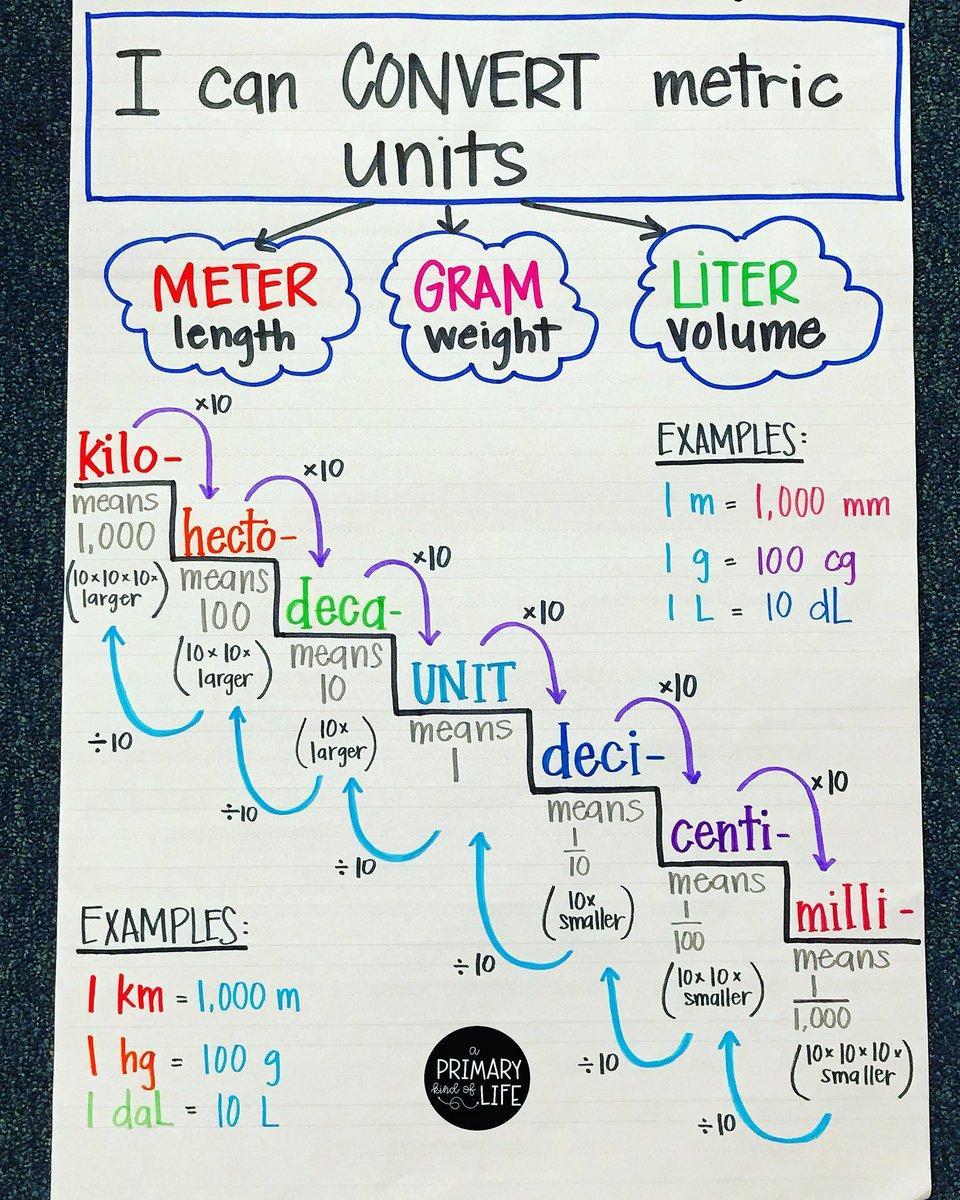 I can CONVERT metric
units
METER
length
GRAM
weight
LiTER
volume
×10
kilo-
means
1,000
(10×10×10×
larger)
×10
hecto-
means
100
(10×10×
larger)
×10
deca-
means
10
(10×
larger)
×10
UNIT
means
1
×10
deci-
means
1
10
(10×
smaller)
×10
centi-
means
1
100
(10×10×
smaller)
milli-
means
1
1,000
(10×10×10×
smaller)
÷10
÷10
÷10
÷10
÷10
÷10
EXAMPLES:
1 m = 1,000 mm
1 g = 100 cg
1 L = 10 dL
EXAMPLES:
1 km = 1,000 m
1 hg = 100 g
1 daL = 10 L
a
PRIMARY
kind of LIFE